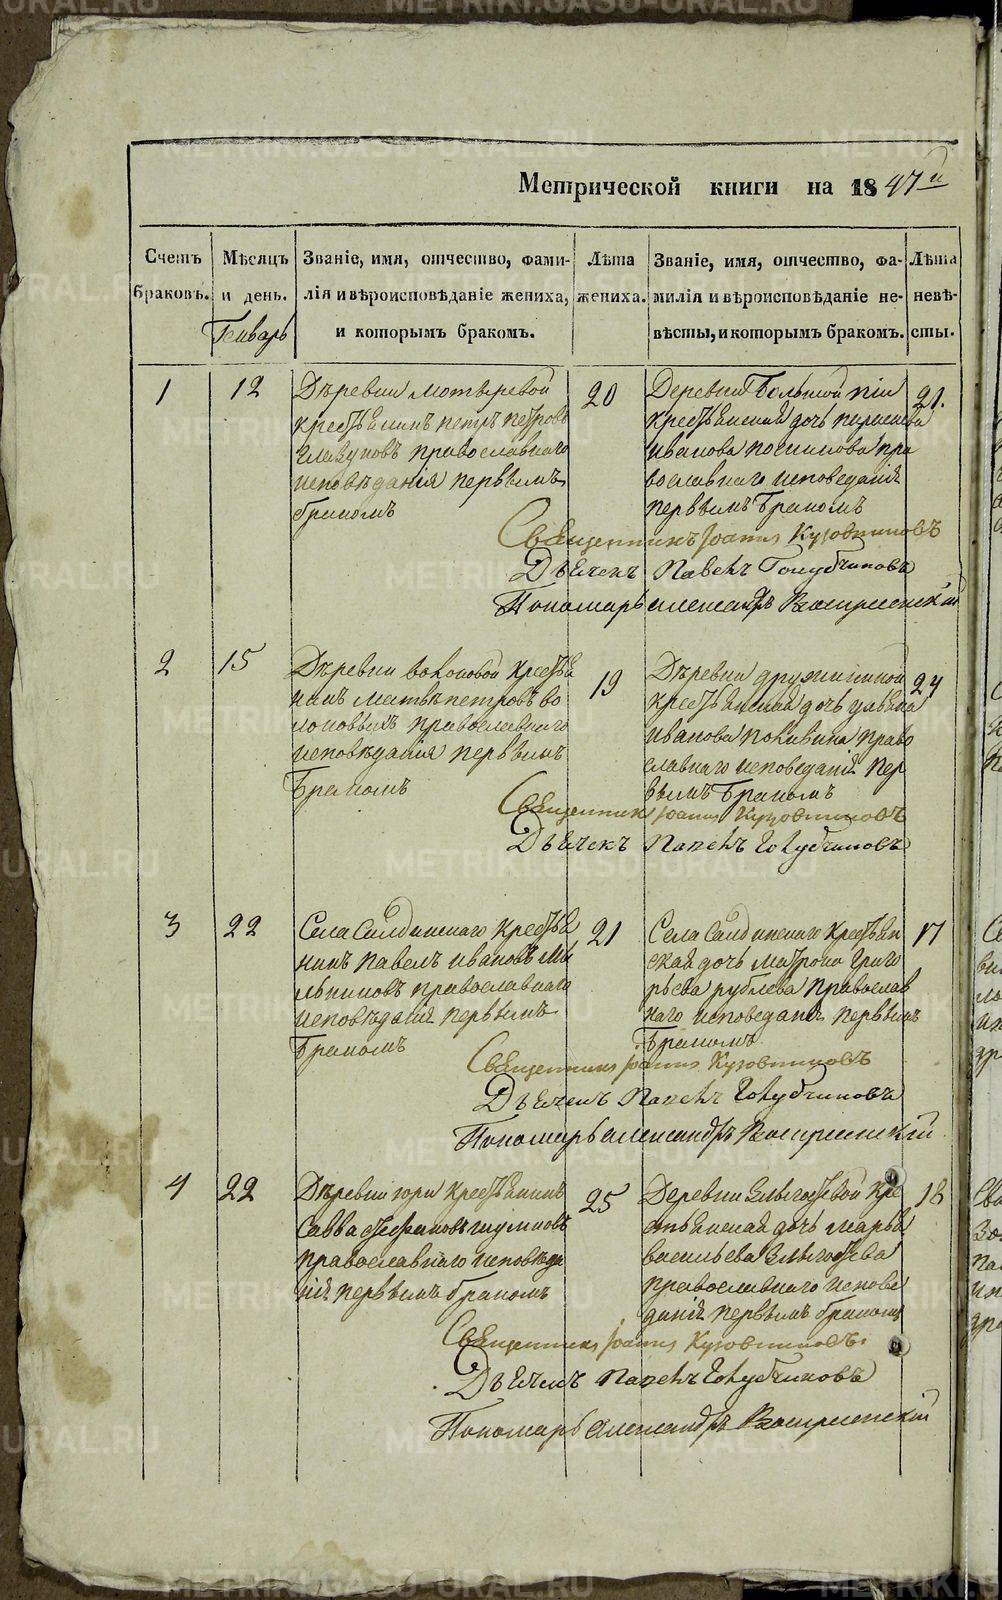 Метрической книги на 1847й
Счетъ браковъ.
Мѣсяцъ и день.
Званіе, имя, отчество, фами-
лія и вѣроисповѣданіе жениха,
и которымъ бракомъ.
Лѣта жениха.
Званіе, имя, отчество, фа-
милія и вѣроисповѣданіе не-
вѣсты, и которымъ бракомъ.
Лѣта невѣ-
сты.
Генварь
1
12
Дѣревни
крестьянинъ петръ петровъ
православнаго
исповѣданія первымъ
бракомъ
20
Деревни Большой
крестьянская дочь
иванова пра
вославнаго исповеданія
первымъ Бракомъ
21.
Священникъ Іоаннъ Кузовниковъ
Дьячекъ Павелъ Голубчиковъ
Пономарь александръ Воскресенскій
2
15
Дѣревни воконовой крестья
нинъ петровъ во
православнаго
исповѣданія первымъ
Бракомъ
19
Дѣревни дружининой
крестьянская дочь
иванова право
славнаго исповеданія пер
вымъ Бракомъ
24
Священникъ Іоаннъ Кузовниковъ
Дьячекъ Павелъ Голубчиковъ
3
22
Села Салдинскаго крестья
нинъ павелъ ивановъ ми
льниковъ православнаго
исповѣданія первымъ
Бракомъ
21
Села Салдинскаго крестьян
ская дочь матрона григо
рьева рублева православ
наго исповеданія первымъ
Бракомъ
17
Священникъ Іоаннъ Кузовниковъ
Дьячекъ Павелъ Голубчиковъ
Пономарь александръ Воскресенскій
4
22
Дѣревни гори крестьянинъ
савва шумковъ
православнаго исповѣда
нія первымъ бракомъ
25
Деревни кре
стьянская дочь марья
васильева
православнаго испове
данія первымъ бракомъ
18
Священникъ Іоаннъ Кузовниковъ
Дьячекъ Павелъ Голубчиковъ
Пономарь александръ Воскресенскій
METRIKI.GASO-URAL.RU